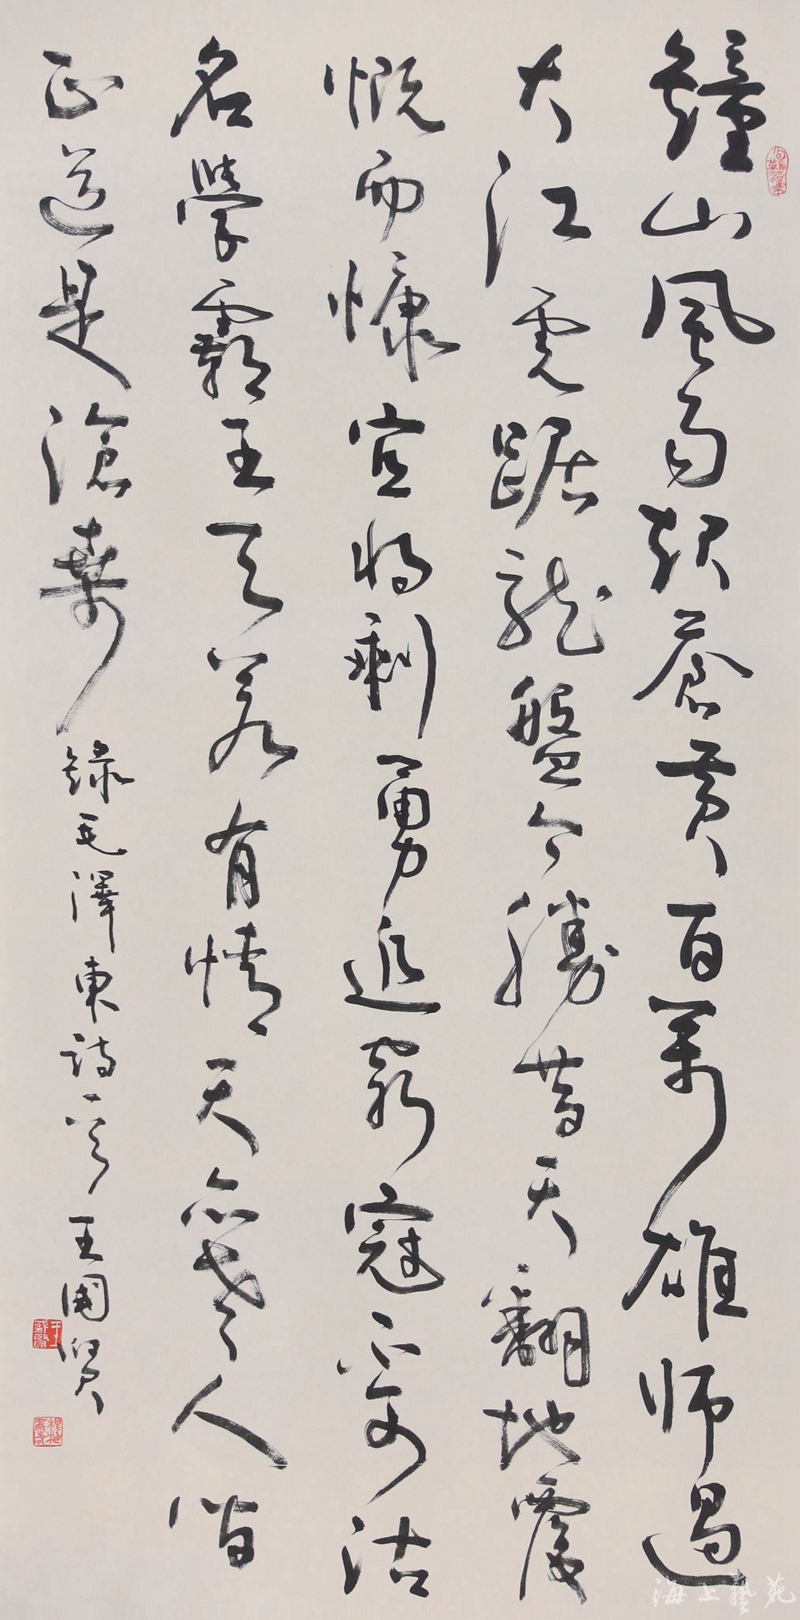 鐘山風雨起蒼黃百萬雄師過
大江虎踞龍盤今勝昔天翻地覆
慨而慷宜將剩勇追窮寇不可沽
名學霸王天若有情天亦老人間
正道是滄桑 錄毛澤東詩一首 王國賢
海上藝苑